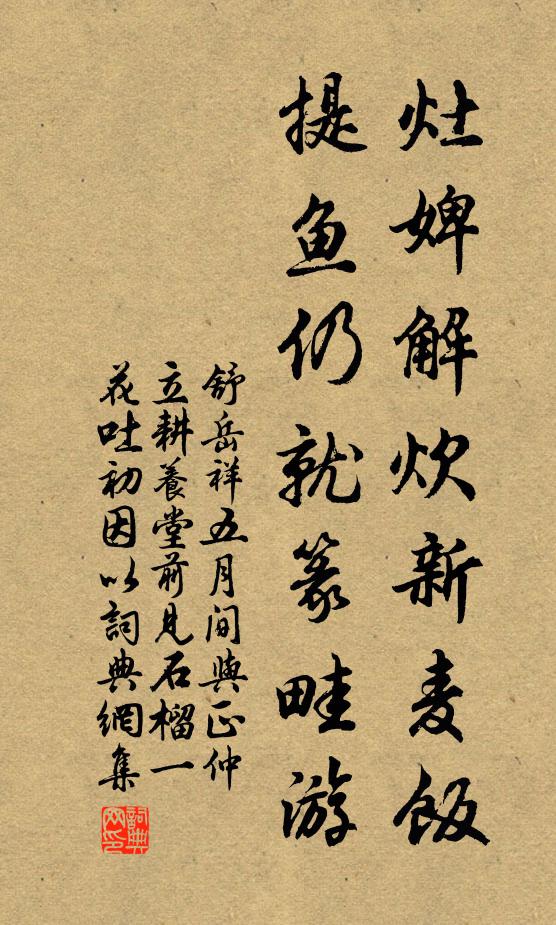 灶婢解炊新麦飯
提鱼仍就篆畦游
舒岳祥五月间與正仲
立耕養堂前見石榴一
花吐初因以詞典網集
詞典
网印